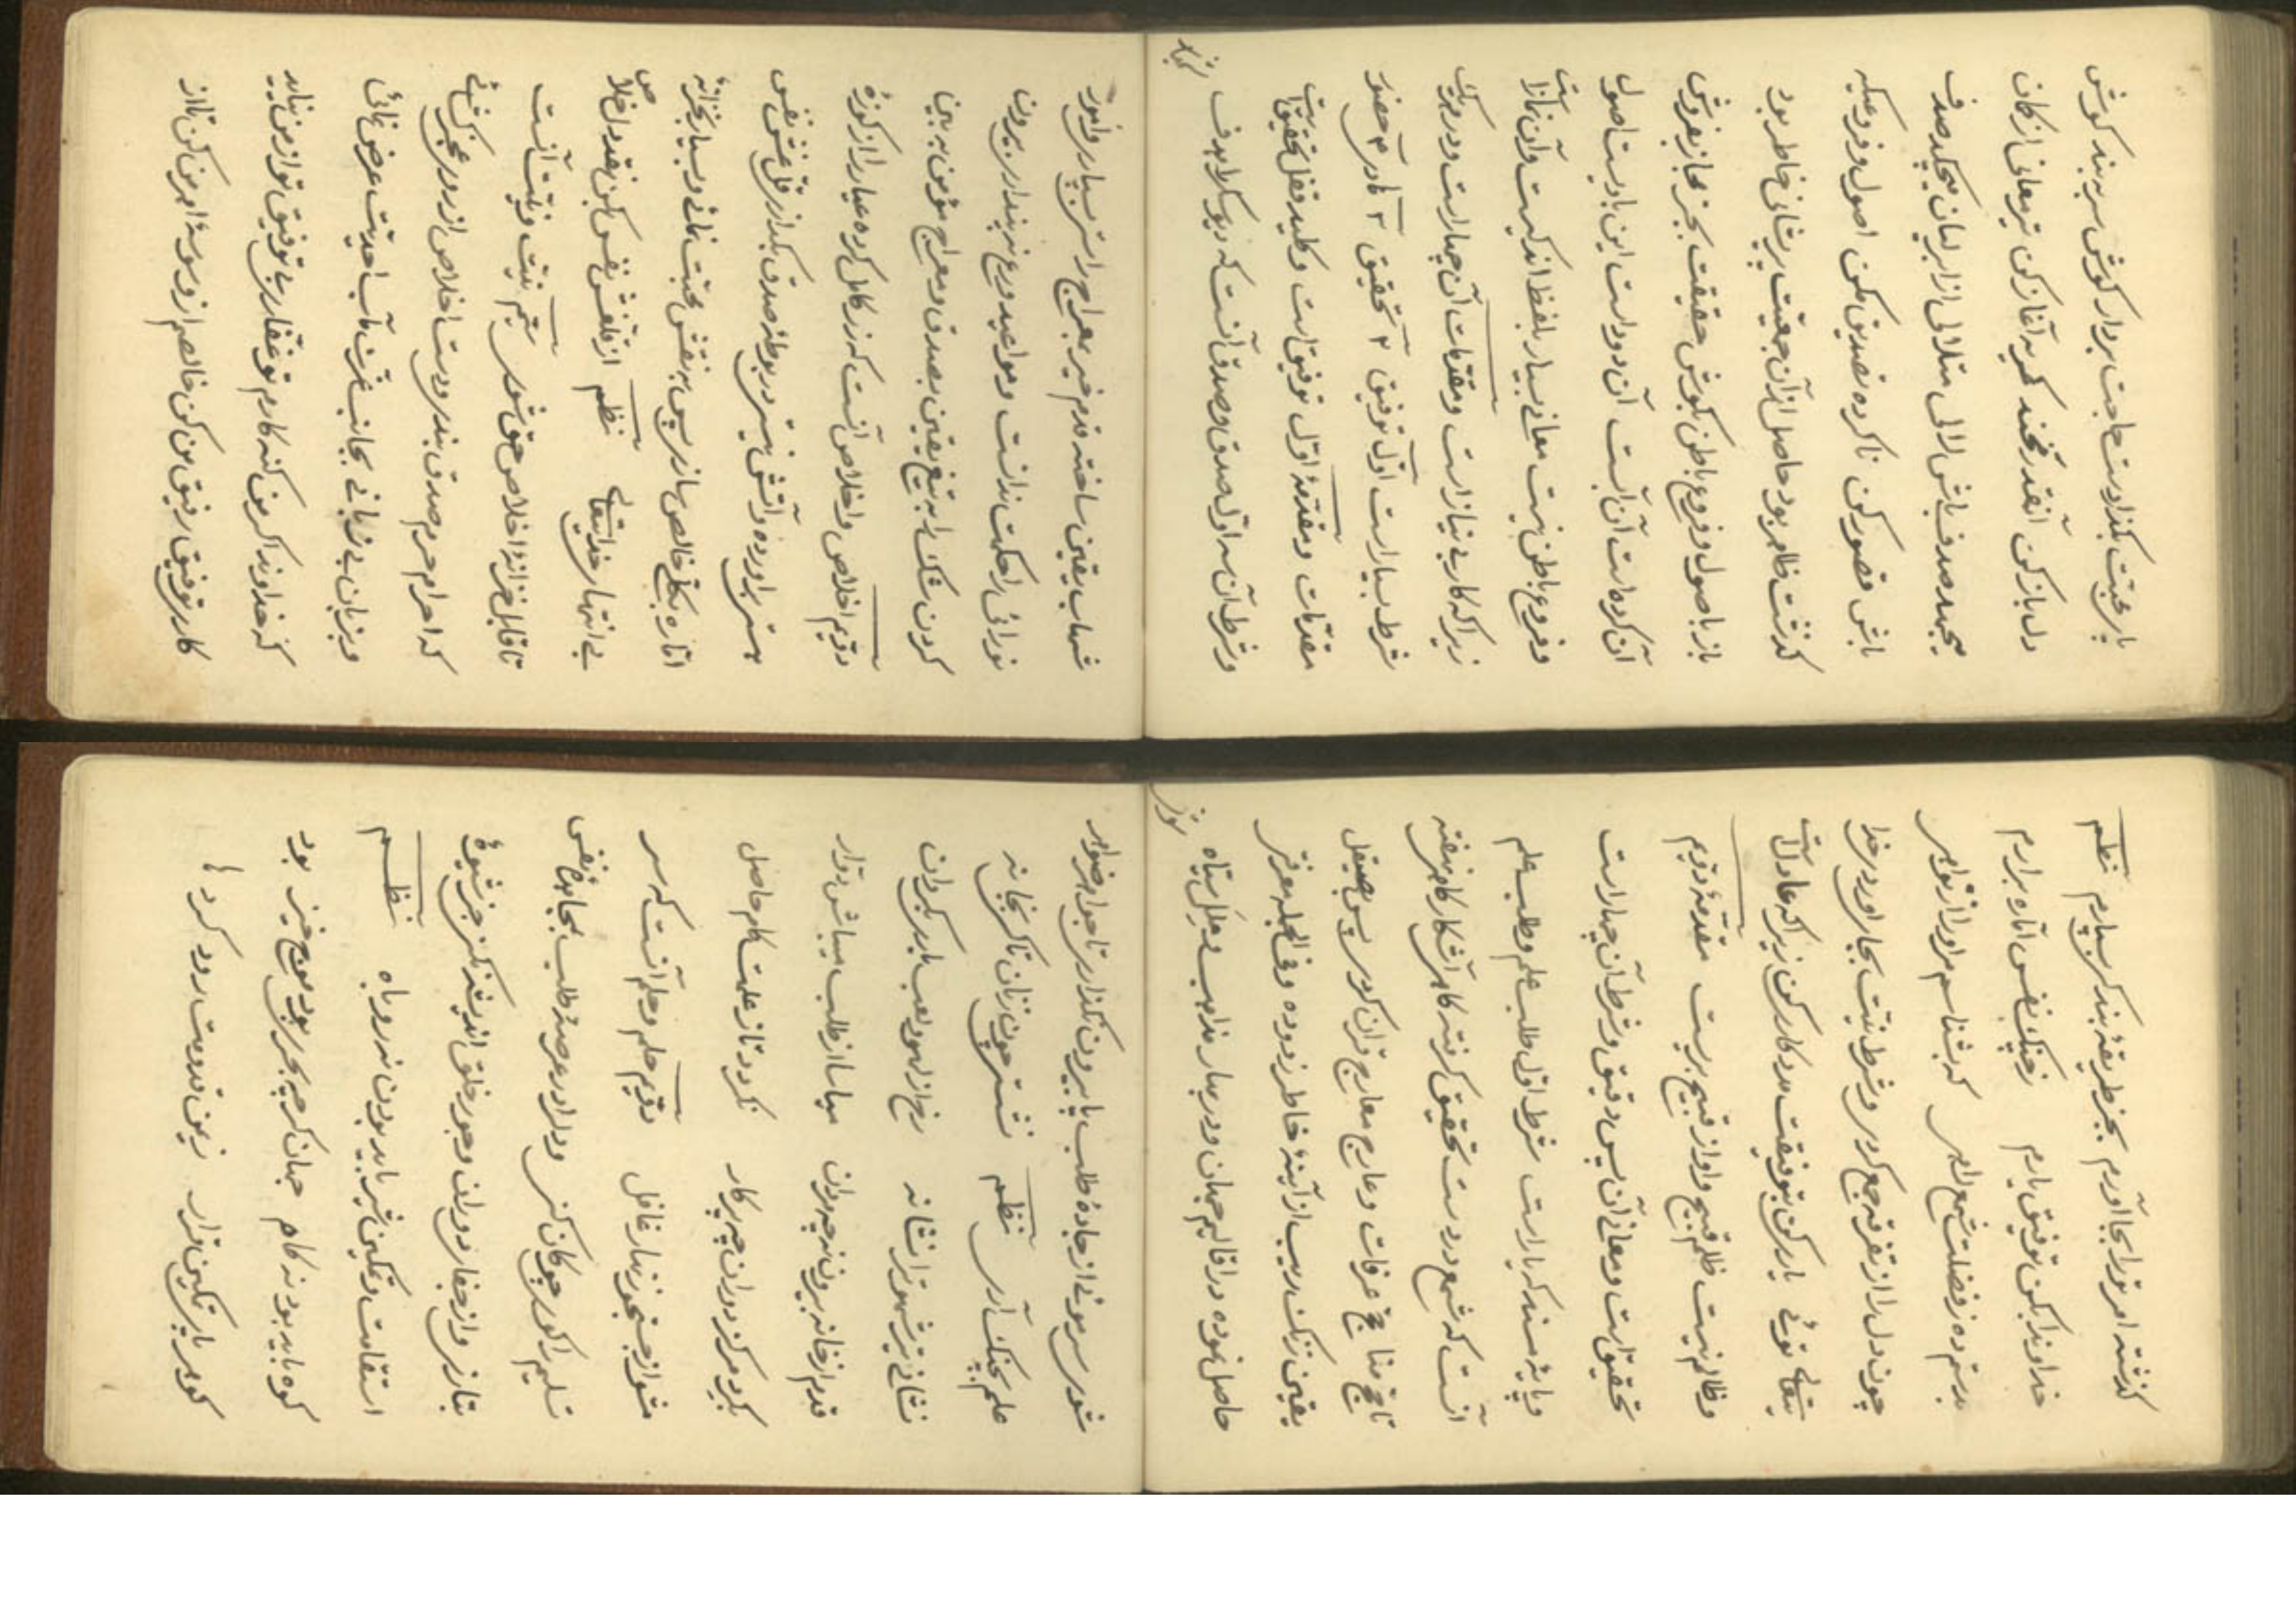 یار محبت بکذار دست حاجت بردار کوش سر به بند کوش
دل باز کن آنقدر نخند کریه آغاز کن تیر معانی از کان
میجهد صدف باش لالی متلالی از ابر لسان میچکد صدف
باش قصور مکن ناکرده تصدیق مکن اصول و فرو عیکه
کذشت ظاهر بود حاصل از آن جمعیت پریشانی خاطر بود
باز باصول و فروع باطن بکوش حقیقت بخر مجاز بفروش
آن کرداست آن آبست آن دود است این بادست اصول
و فروع باطن نیست معانی بسیار بلفظ اندکیست و این نماز را
زیراکه کار بی نیاز است و مقدمات آن چهار است و در هر یک
شرط بسیار است اول توفیق ۲ تحقیق ۳ کلام ۴ حضور
مقدمات و مقدمهٔ اول توفیق است و کلید قفل تحقیق است
و شرط آن سه اول صدق و صدق آنست که دیو سکرا بدف
شهاب یقین ساخته قدم خیر بمعراج راستی سپارد و امور
نورانی را حکمت دانست و مواعید دروغ پندار بیرون
کردن شک را به تیغ یقین بصدق و معراج مؤمن به بین
دویم اخلاص و اخلاص آنست که زر کامل کرده عیار را از کوزهٔ
هستی برآورده و آتش نیستی در بوطهٔ صدق بکدازد قل غش نفس
اماره بکلی خالص سازد پس به نقش محبت مانی و سپارد بخزانه
بی انتها خدایتعالی نظم از قل غش نفس کن نقد دل خلاص
تا قابل خزانهٔ اخلاص حق شوی سیم نیت و نیت آنست
که احرام حرم صدق بندد و دست اخلاص از روی عجز کشائی
و بزبان بی زبانی بجانب عزت مآب احدیت عرض نمائی
که خداوندا کر من کنه کارم تو غفاری بی توفیق تو از من نیاید
کار توفیق رفیق من کن خالصم از وسوسهٔ اهرمن کن تا از
کذشته امر تو را بجا آورم بجز طریقهٔ بندکی سپارم نظم
خداوندا بکن توفیق یارم ز چنک نفس اماره برآرم
بدستم ده ز فضلت شمع راهی که بشناسم مراورا از نواهی
چون دل را از تفرقه جمع کردی و شرط نیت بجا آوردی خدا
یتعالی توئی یاری کن بتوفیقت مددکاری کن زیراکه عادلست
و ظالم نیست ظلم قبیح و او از قبیح بریست مقدمهٔ دویم
تحقیق است و معانی آن بس دقیق و شرط آن چهار است
و پایهٔ مسند کبریاست شرط اول طلب علم و طلب علم
آنست که شمع در دست تحقیق کرفته کاهی آشکار کاهی نهفته
مناهج عرفات و عارج معارج قرآن کردی پس بصیقل
یقین زنک ریب از آینهٔ خاطر زدوده و فی الجمله معرفتی
حاصل نموده در اقالیم جهان و در بهار مذاهب و ملل سیاه
شوی سر موئی از جادهٔ طلب پا بیرون نکذاری تا جواهر ضواهر
علم بچنک آری نظم نشستی چون زنان تا کی بخانه
نشانی تیر شهوت را نشانه رخ از لهو و لعب باید بکردان
قدم از خانه بیرون نه چه مردان میاسا از طلب میباش دوار
بکرد مرکز دوران چه پرکار نکردد تا ز علمت کام حاصل
مشو از جستجو زنهار غافل دویم حلم و حلم آنست که سر
تسلیم را کوی چوکان کنی و دل را در عرصهٔ طلب بجا بدی نفس
بتازی و از جفای دوران و جور خلق اندیشه نکنی جز شیوهٔ
استقامت و تمکین شیر باید بودن نه روباه نظم
کوه باید بود نه کاه جهان کر چه بحری بود موج خیز بود
کوهر پای تمکین قرار زیمن قدومت رود کرد